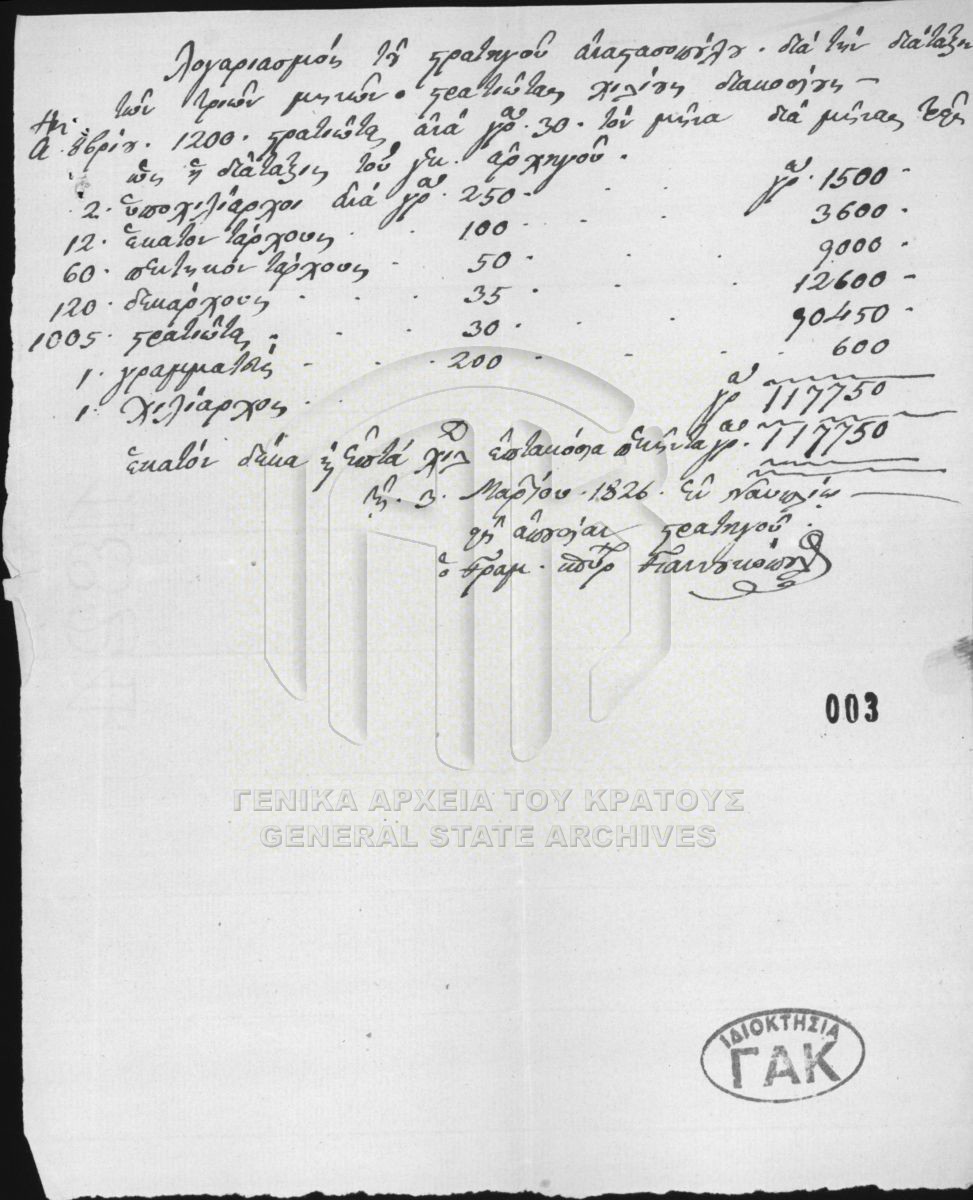 Λογαριασμός τοῦ στρατηγοῦ ἀναγνωσοπούλου. διά τήν διάταξιν
τῶν τριῶν μηνῶν. στρατιώτας χιλίους διακοσίους —
Α 8βρίου. 1200. στρατιώτας ἀνά γρ. 30. τόν μῆνα διά μῆνας τρεῖς
ὡς ἡ διάταξις τοῦ γεν. ἀρχηγοῦ.
2. ὑποχιλίαρχοι ἀνά γρ. 250. γρ. 1500.
12. ἑκατοντάρχους 100. 3600.
60. πεντηκοντάρχους 50. 9000.
120. δεκάρχους 35. 12600
1005. στρατιώτας 30. 90450.
1. γραμματεύς 200. 600
1. χιλίαρχος γρ. 117750
ἑκατόν δέκα ἑπτά χιλ ἑπτακόσια πενῆντα γρ. 117750
τῇ. 3. Μαρτίου. 1826. Ἐν Ναυπλίῳ
στρατηγοῦ
ὁ Γραμ.
003
ΓΕΝΙΚΑ ΑΡΧΕΙΑ ΤΟΥ ΚΡΑΤΟΥΣ
GENERAL STATE ARCHIVES
ΙΔΙΟΚΤΗΣΙΑ
ΓΑΚ